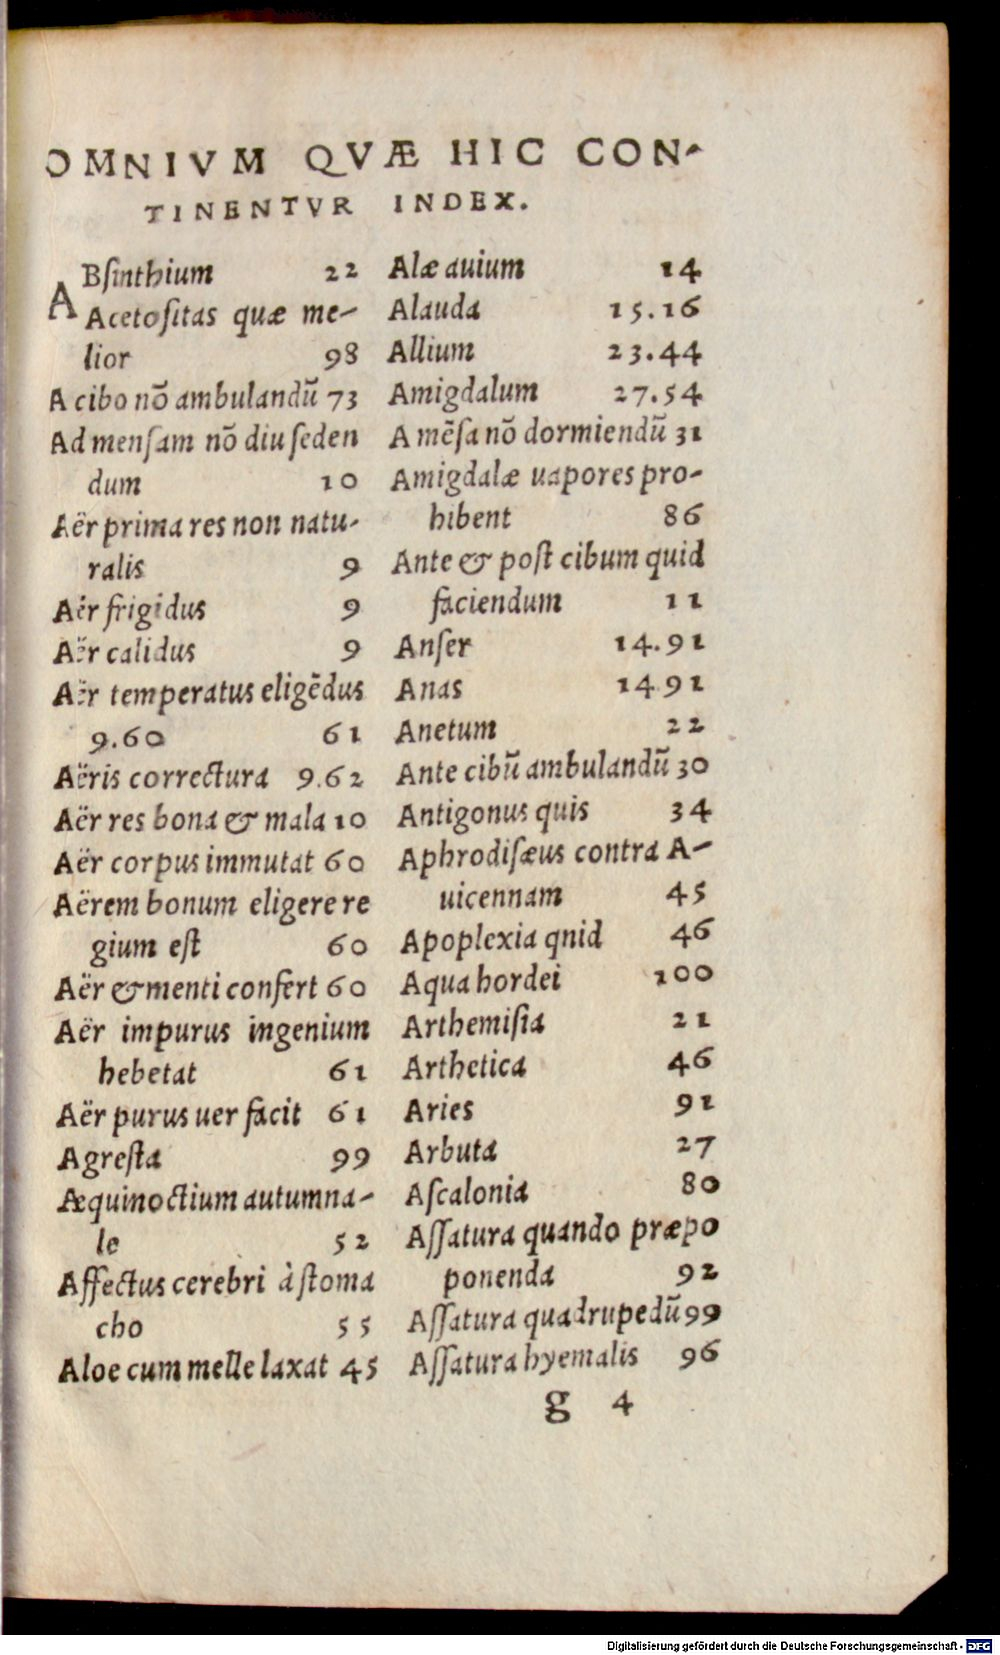 OMNIVM QVÆ HIC CON-
TINENTVR INDEX.
ABſinthium 22
Acetoſitas quæ me-
lior 98
A cibo nō ambulandū 73
Ad menſam nō diu ſeden
dum 10
Aër prima res non natu-
ralis 9
Aër frigidus 9
Aër calidus 9
Aër temperatus eligēdus
9.60 61
Aëris correctura 9.62
Aër res bona & mala 10
Aër corpus immutat 60
Aërem bonum eligere re
gium eſt 60
Aër & menti confert 60
Aër impurus ingenium
hebetat 61
Aër purus uer facit 61
Agreſta 99
Æquinoctium autumna-
le 52
Affectus cerebri à ſtoma
cho 55
Aloe cum melle laxat 45
Alæ auium 14
Alauda 15.16
Allium 23.44
Amigdalum 27.54
A mēſa nō dormiendū 31
Amigdalæ uapores pro-
hibent 86
Ante & poſt cibum quid
faciendum 11
Anſer 14.91
Anas 14 91
Anetum 22
Ante cibū ambulandū 30
Antigonus quis 34
Aphrodiſæus contra A-
uicennam 45
Apoplexia qnid 46
Aqua hordei 100
Arthemiſia 21
Arthetica 46
Aries 91
Arbuta 27
Aſcalonia 80
Aſſatura quando præpo
ponenda 92
Aſſatura quadrupedū 99
Aſſatura hyemalis 96
g 4
Digitalisierung gefördert durch die Deutsche Forschungsgemeinschaft - DFG